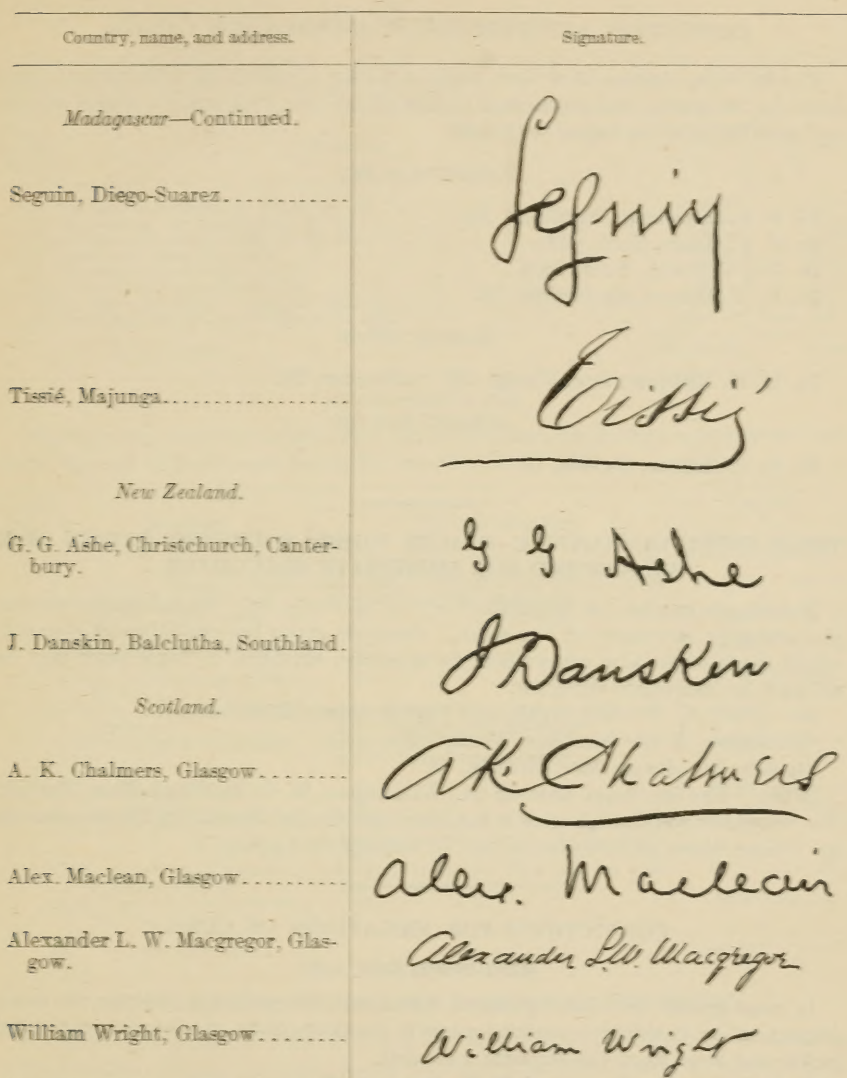 Country, name, and address. Signature.
Madagascar—Continued.
Seguin, Diego-Suarez............ Seguin
Tissié, Majunga.................. Tissié
New Zealand.
G. G. Ashe, Christchurch, Canter- G G Ashe
bury.
J. Danskin, Balclutha, Southland. J Danskin
Scotland.
A. K. Chalmers, Glasgow........ AK. Chalmers
Alex. Maclean, Glasgow.......... Alex. Maclean
Alexander L. W. Macgregor, Glas- Alexander L.W. Macgregor
gow.
William Wright, Glasgow........ William Wright